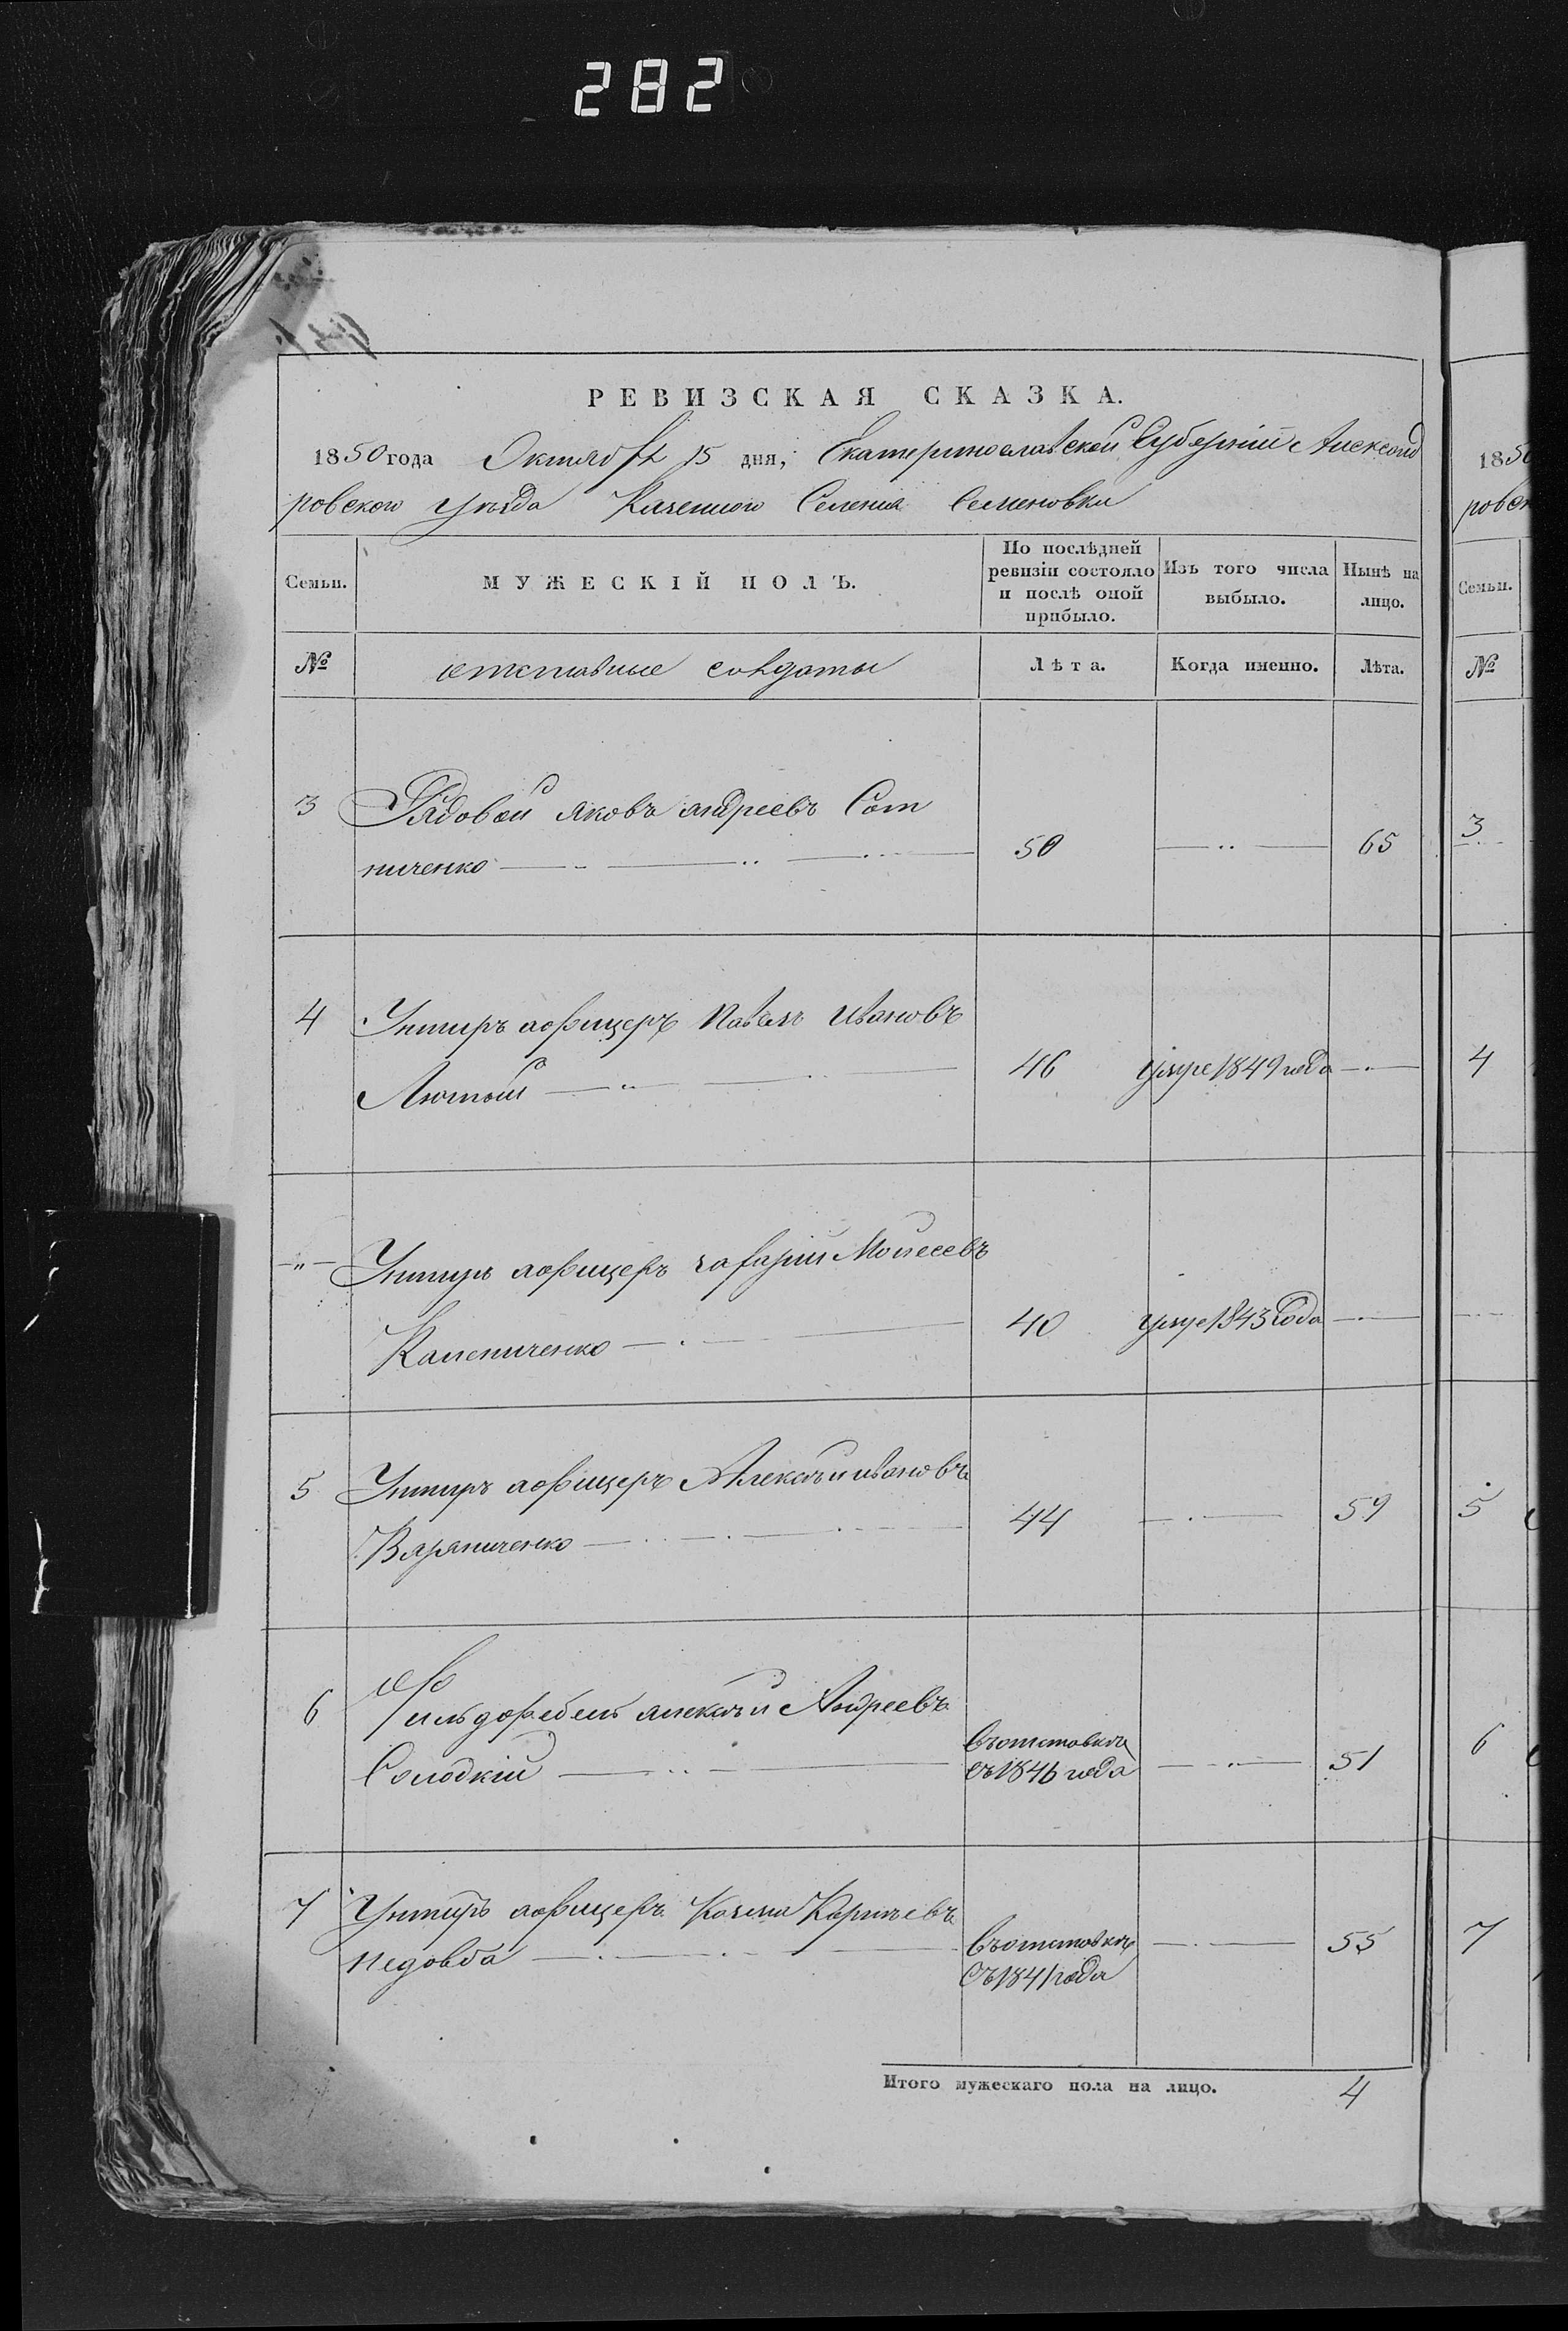 282
РЕВИЗСКАЯ СКАЗКА.
1850 года Октября 15 дня, Екатеринославской Губерніи Александ
ровскаго уѣзда Казеннаго Селенія Семеновки
Семьи. МУЖЕСКІЙ ПОЛЪ. По послѣдней ревизіи состояло и послѣ оной прибыло. Изъ того числа выбыло. Нынѣ на лицо.
№ отставные солдаты Лѣта. Когда именно. Лѣта.
3 Рядовой Яковъ Андреевъ Сот
ниченко 50 65
4 Унтиръ афицеръ Павелъ Ивановъ
Лютый 46 умре 1849 года
Унтиръ афицеръ Моисеевъ
Калениченко 40 умре 1843 Года
5 Унтиръ афицеръ Алексѣй Ивановъ
Варяниченко 44 59
6 Фильдфебель Алексѣй Андреевъ
Солодкій Въ отставкѣ съ 1846 года 51
7 Унтиръ афицеръ Козма Корнѣевъ
Недовба Въ отставкѣ съ 1841 года 55
Итого мужескаго пола на лицо. 4
1850
ровск
Семьи.
№
3
4
5
6
7